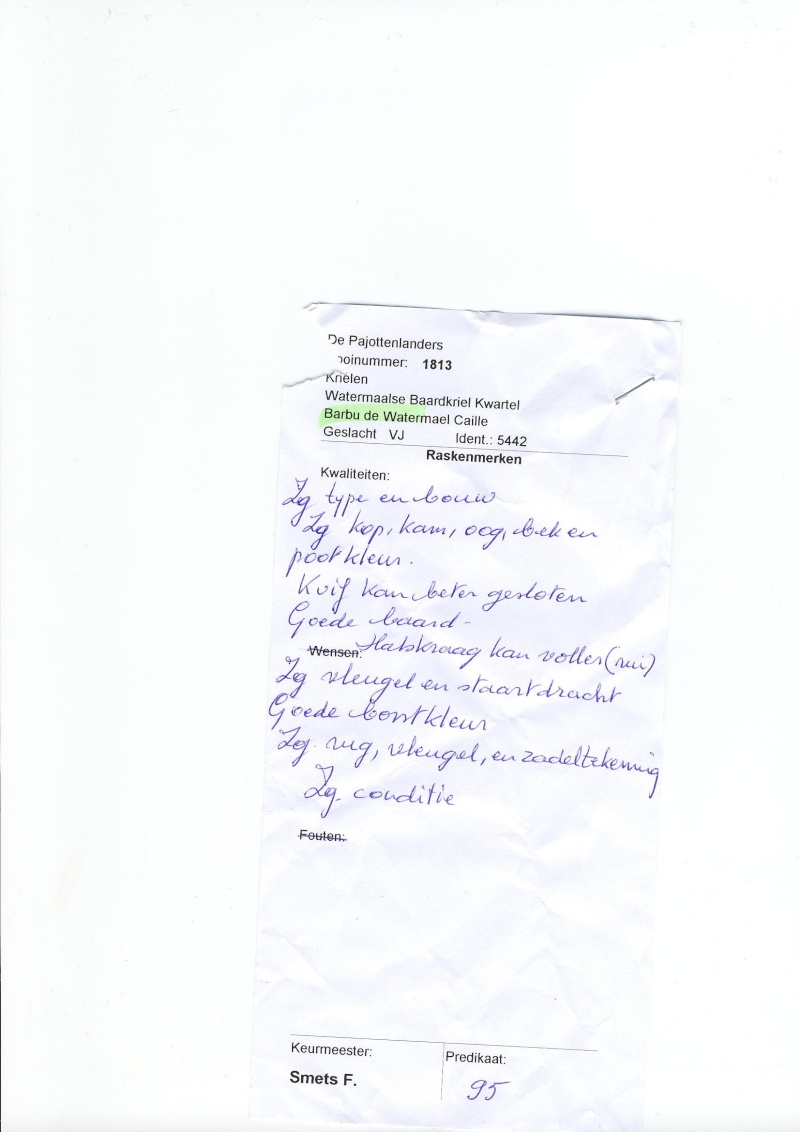 De Pajottenlanders
ooinummer: 1813
Krielen
Watermaalse Baardkriel Kwartel
Barbu de Watermael Caille
Geslacht VJ Ident.: 5442
Raskenmerken
Kwaliteiten:
Zg type en bouw
Zg kop, kam, oog, bek en
pootkleur.
Kuif kan beter gesloten
Goede baard -
Wensen: Halskraag kan voller (rui)
Zg vleugel en staartdracht
Goede borstkleur
Zg. rug, vleugel, en zadeltekening
Zg. conditie
Fouten:
Keurmeester: Predikaat:
Smets F. 95